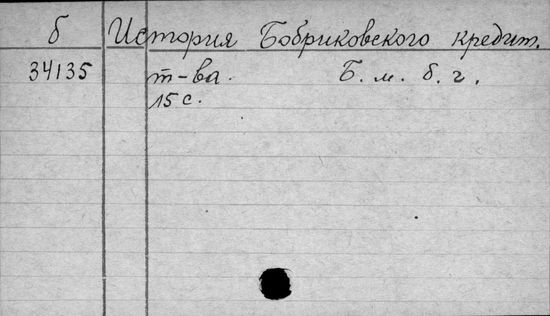 б История Бобриковского кредит.
34135 т-ва. Б. м. б. г.
15 с.